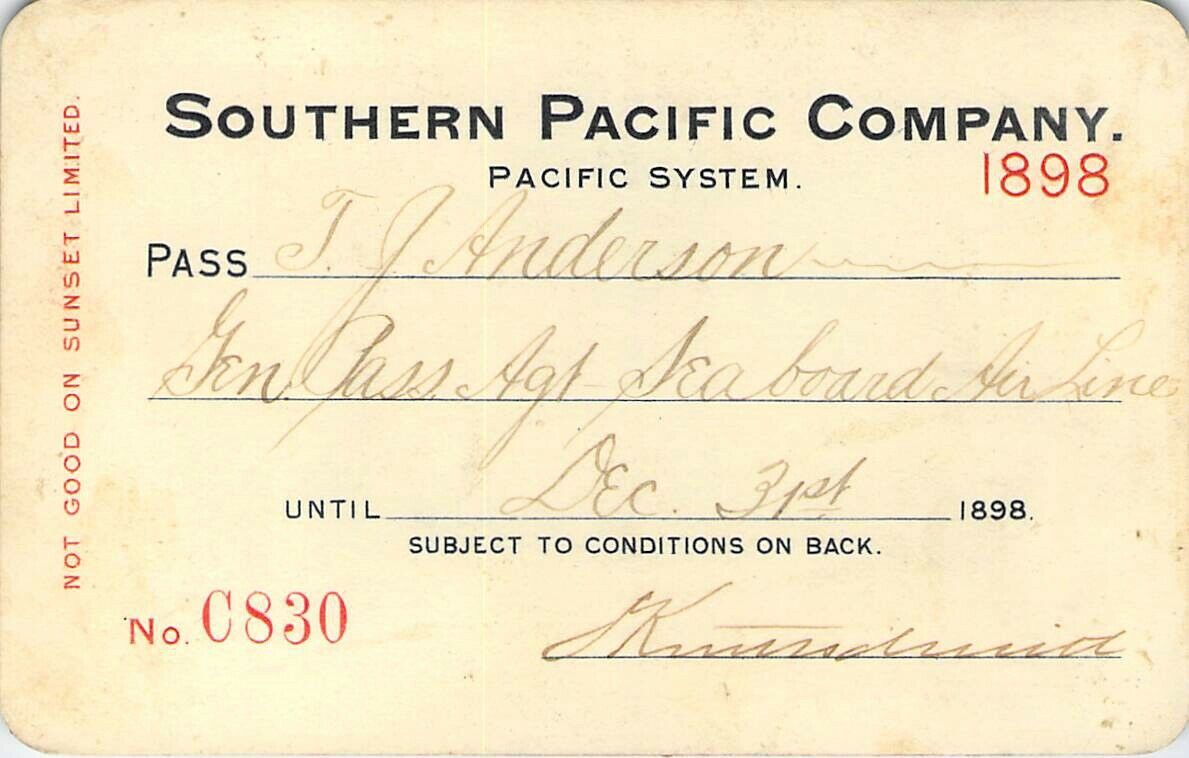 SOUTHERN PACIFIC COMPANY.
PACIFIC SYSTEM.
1898
PASS T. J Anderson
Gen. Pass. Agt Seaboard Air Line
UNTIL Dec. 31st 1898.
SUBJECT TO CONDITIONS ON BACK.
No. C830
NOT GOOD ON SUNSET LIMITED.